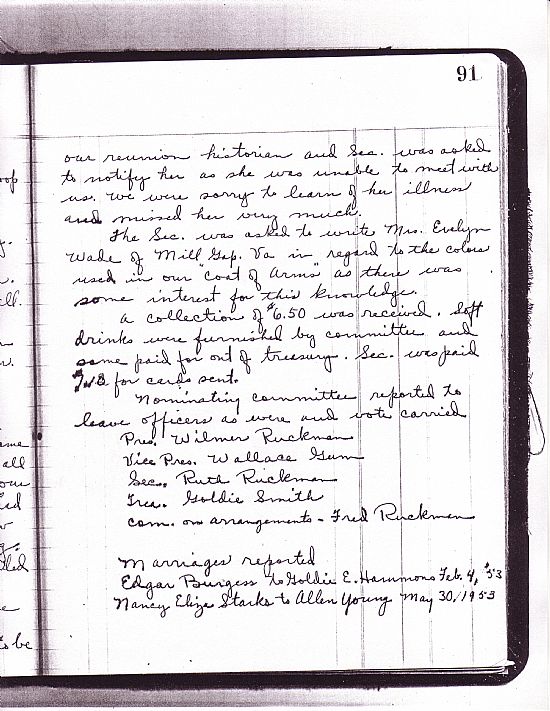 91
our reunion historian and Sec. was asked
to notify her as she was unable to meet with
us. We were sorry to learn of her illness
and missed her very much.
The Sec. was asked to write Mrs. Evelyn
Wade of Mill Gap. Va in regard to the colors
used in our "Coat of Arms" as there was
some interest for this knowledge.
A collection of $6.50 was received. Soft
drinks were furnished by committee and
same paid for out of treasury. Sec. was paid
for cards sent.
Nominating committee reported to
leave officers as were and vote carried
Pres. Wilmer Ruckman
Vice Pres. Wallace Gum
Sec. Ruth Ruckman
Trea. Goldie Smith
Com. on arrangements - Fred Ruckman
Marriages reported
Edgar Burgess to Goldie E. Hammons Feb. 4, '53
Nancy Eliza Starks to Allen Young May 30, 1953
all
to be